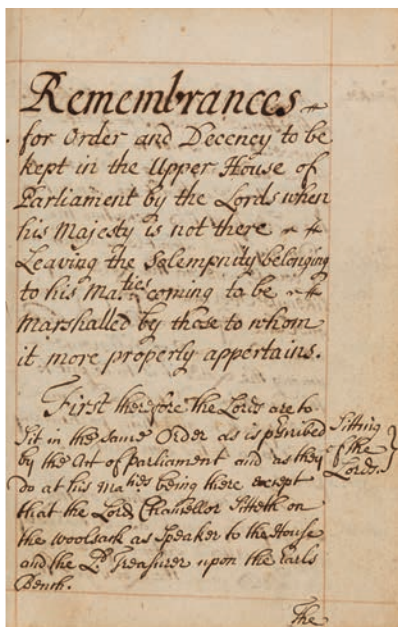 Remembrances
for Order and Decency to be
kept in the Upper House of
Parliament by the Lords when
his Majesty is not there
Leaving the Solempnity belonging
to his Ma:ties coming to be
Marshalled by those to whom
it more properly appertains.
First therefore The Lords are to
Sit in the same Order as is p'scribed
by the Act of parliament and as they
do at his Ma:ties being there except
that the Lord Chancellor Sitteth on
the woolsack as Speaker to the House
and the Ld Treasurer upon the Earls
Bench.
Sitting
of the
Lords.
The